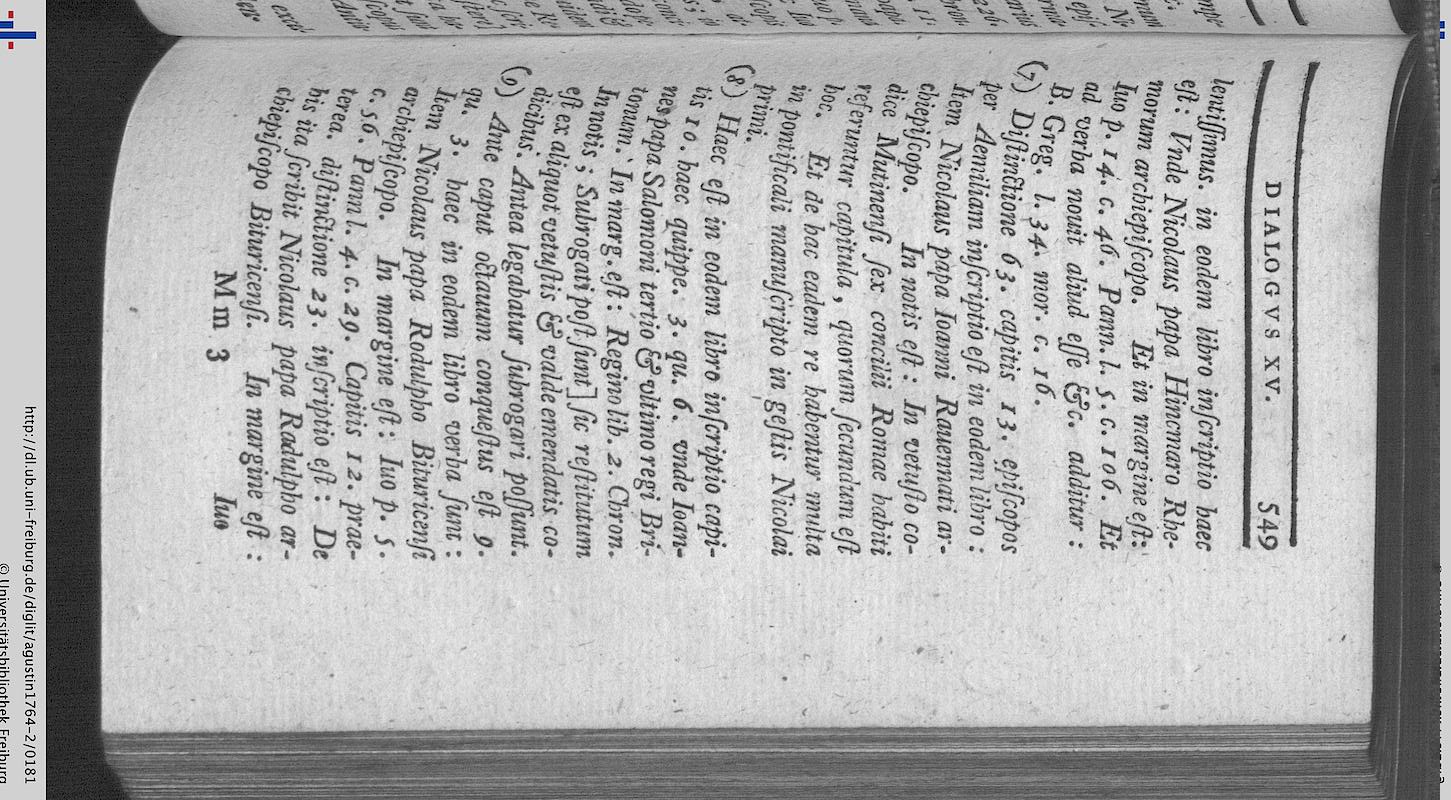 DIALOGVS XV. 549
lentiſſimus. in eodem libro inſcriptio haec
eſt: Vnde Nicolaus papa Hincmaro Rhe-
morum archiepiſcopo. Et in margine eſt:
Iuo p. 14. c. 46. Pann. l. 5. c. 106. Et
ad verba nouit aliud eſſe &c. additur:
B. Greg. l. 34. mor. c. 16.
(7) Diſtinctione 63. capitis 13. epiſcopos
per Aemiliam inſcriptio eſt in eodem libro:
Item Nicolaus papa Ioanni Rauennati ar-
chiepiſcopo. In notis eſt: In vetuſto co-
dice Mutinenſi ſex concilii Romae habiti
referuntur capitula, quorum ſecundum eſt
hoc. Et de hac eadem re habentur multa
in pontificali manuſcripto in geſtis Nicolai
primi.
(8) Haec eſt in eodem libro inſcriptio capi-
tis 10. haec quippe. 3. qu. 6. vnde Ioan-
nes papa Salomoni tertio & vltimo regi Bri-
tonum. In marg. eſt: Regino lib. 2. Chron.
In notis; Subrogari poſſunt] ſic reſtitutum
eſt ex aliquot vetuſtis & valde emendatis co-
dicibus. Antea legabatur ſubrogari poſſunt.
(9) Ante caput octauum conqueſtus eſt 9.
qu. 3. haec in eodem libro verba ſunt:
Item Nicolaus papa Rodulpho Bituricenſi
archiepiſcopo. In margine eſt: Iuo p. 5.
c. 56. Pann l. 4. c. 29. Capitis 12. prae-
terea. diſtinctione 23. inſcriptio eſt: De
his ita ſcribit Nicolaus papa Radulpho ar-
chiepiſcopo Bituricenſi. In margine eſt:
Mm 3 Iuo
http://dl.ub.uni-freiburg.de/diglit/agustin1764-2/0181
© Universitätsbibliothek Freiburg